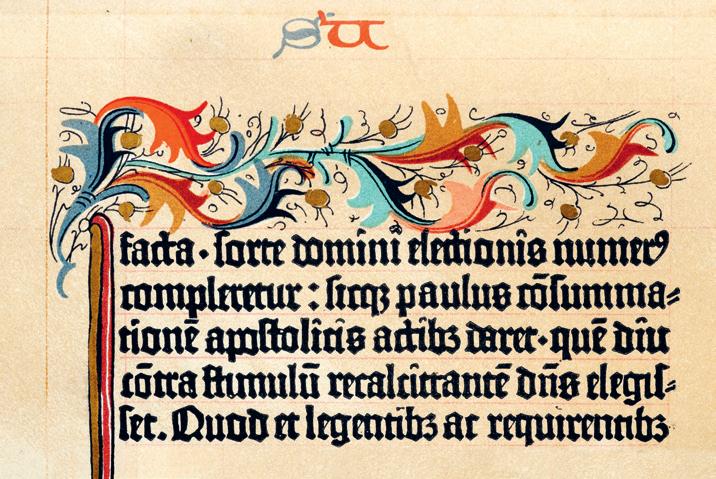 S U
facta · sorte domini electionis numerꝰ
completetur : sicqꝫ paulus cōsumma⸗
tionē apostolicis actibꝫ daret · quē diu
cōtra stimulū recalcitrantē dn̄s elegis⸗
set. Quod et legentibꝫ ac requirentibꝫ